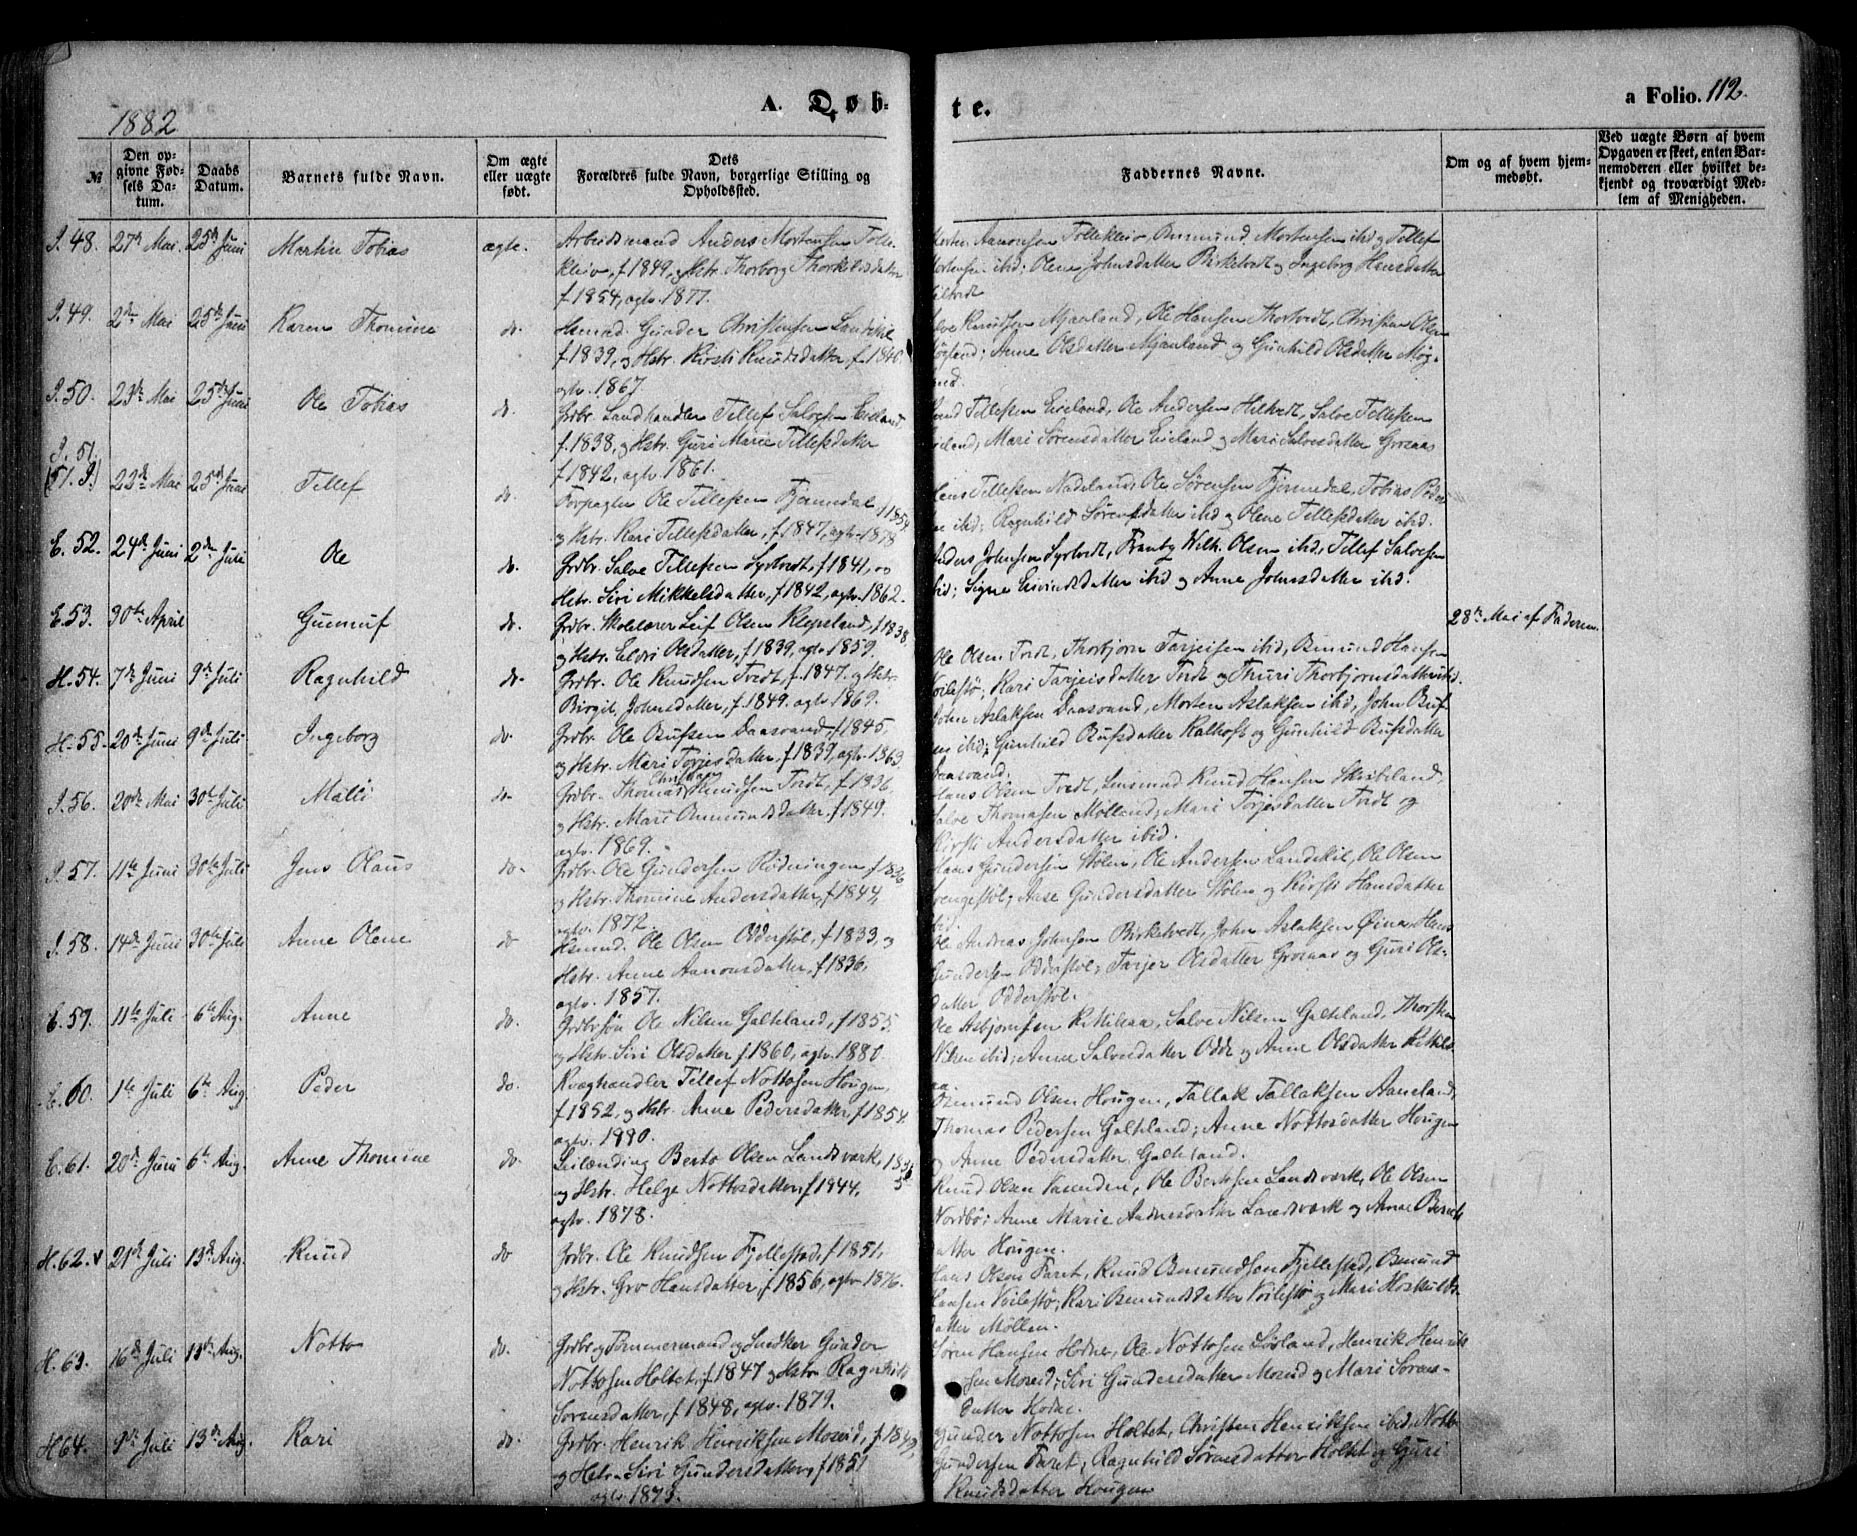 1882
A. Døb-
te.
a Folio. 112.
№
Den op-
givne Fød-
sels Da-
tum.
Daabs
Datum.
Barnets fulde Navn.
Om ægte
eller uægte
født.
Dets
Forældres fulde Navn, borgerlige Stilling og
Opholdssted.
Faddernes Navne.
Om og af hvem hjem-
medøbt.
Ved uægte Børn af hvem
Opgaven er skeet, enten Bar-
nemoderen eller hvilket be-
kjendt og troværdigt Med-
lem af Menigheden.
I. 48. 27de Mai. 25de Juni Martin Tobias ægte.
Arbeidsmand Anders Mortensen Tolle-
kleiv, f. 1849, og Hstr. Thorborg Thorkelsdatter
f. 1854, agtv. 1877.
Morten Aanonsen Tollekleiv, Osmund Mortensen ibid og Tellef
Mortensen ibid; Olene Johnsdatter Birketvedt og Ingeborg Hansdatter
I. 49. 2den Mai 25de Juni Karen Thomine do.
Hsmd. Gunder Christensen Landskil
f. 1839, og Hstr. Kirsti Knudsdatter f. 1840
agtv. 1867.
Salve Knudsen Mjaaland, Ole Hansen Thortvedt, Christen Olsen
Anne Olsdatter Mjaaland og Gunhild Olsdatter Mög-
land.
I. 50. 23de Mai 25de Juni Ole Tobias do.
Grdbr. Landhandler Tellef Salvesen Eieland,
f. 1838, og Hstr. Guri Marie Tellefsdatter
f. 1842, agtv. 1861.
Tellefsen Eieland, Ole Andersen Hiltvedt, Salve Tellefsen
Eieland; Mari Sörensdatter Eieland og Mari Salvesdatter Grosaas
I. 51.
(51. I.) 22de Mai 25de Juni Tellef do.
Forpagter Ole Tellefsen Fjermedal f. 1854
og Hstr. Kari Tellefsdatter, f. 1847, agtv. 1878
Jens Tellefsen Nadeland, Ole Sörensen Fjermedal, Tobias Peder-
sen ibid; Ragnhild Sörensdatter ibid og Olene Tellefsdatter ibid.
E. 52. 24de Juni 2den Juli Ole do.
Grdbr. Salve Tellefsen Syrtvedt, f. 1841, og
Hstr. Siri Mikkelsdatter, f. 1842, agtv. 1862.
Anders Johnsen Syrtvedt, Wilh. Olsen ibid, Tellef Salvesen
ibid; Signe Eivindsdatter ibid og Anne Johnsdatter ibid.
E. 53. 30te April Gunnuf do.
Grdbr. Skolelærer Leif Olsen Klepsland, f. 1838
og Hstr. Eldri Olsdatter, f. 1839, agtv. 1859.
28de Mai af Faderen.
H. 54. 7de Juni 9de Juli Ragnhild do.
Grdbr. Ole Knudsen Tveidt, f. 1847. og Hstr.
Birgit Johnsdatter, f. 1849. agtv. 1869.
Ole Olsen Tveidt, Thorbjörn Tarjeisen ibid, Osmund Hansen
Voilestø; Kari Tarjeisdatter Tveidt og Thuri Thorbjörnsdatter ibid.
H. 55. 20de Juni 9de Juli Ingeborg do.
Grdbr. Ole Olufsen Daasvand, f. 1845,
og Hstr. Mari Torjesdatter, f. 1839, agtv. 1863.
John Aslaksen Daasvand, Morten Aslaksen ibid, John Oluf-
sen ibid; Gunhild Olufsdatter Kalhoft og Gunhild Olufsdatter
Daasvand.
I. 56. 20de Mai 30te Juli Malli do.
Grdbr. Thomas Christian Knudsen Tveidt, f. 1836,
og Hstr. Mari Osmundsdatter, f. 1849.
agtv. 1869.
Hans Olsen Tveidt, Lensmand Knud Hansen Skribeland,
Salve Thomasen Mölland; Mari Torjesdatter Tveidt og
Kirsti Andersdatter ibid.
I. 57. 11te Juni 30te Juli Jens Olaus do.
Grdbr. Ole Gundersen Rödningen f. 1836
og Hstr. Thomine Andersdatter, f. 1844,
agtv. 1872.
Hans Gundersen Stölen, Ole Andersen Landskil, Ole Olsen
Aase Gundersdatter Stölen og Kirsti Hansdatter
ibid.
I. 58. 14de Juni 30te Juli Anne Olene do
Hsmd. Ole Olsen Odderstöl, f. 1833, og
Hstr. Anne Aanonsdatter, f. 1836,
agtv. 1857.
Ole Andreas Johnsen Birketvedt, John Aslaksen Øina, Hans
Gundersen Odderstöl; Tarjer Olsdatter Grosaas og Guri Ols-
datter Odderstöl.
E. 59. 11te Juli 6te Aug. Anne do.
Grdbrsön Ole Nilsen Galteland, f. 1855
og Hstr. Siri Olsdatter f. 1860, agtv. 1880.
Ole Asbjörnsen Kittilsaa, Salve Nilsen Galteland, Thorsten
Nilsen ibid; Anne Salvesdatter Odde og Anne Olsdatter Kittils-
aa.
E. 60. 1ste Juli 6te Aug. Peder do.
Kvæghandler Tellef Nottosen Hougen,
f. 1852, og Hstr. Anne Pedersdatter, f. 1854.
agtv. 1880.
Osmund Olsen Hougen, Tallak Tallaksen Aaneland,
Thomas Pedersen Galteland; Anne Nottosdatter Hougen
og Anne Pedersdatter Galteland.
E. 61. 20de Juni 6te Aug. Anne Thomine do.
Leilænding Berto Olsen Landsverk,
og Hstr. Helge Nottosdatter, f. 1844,
agtv. 1878.
Knud Olsen Ole Bertosen Landsverk, Ole Olsen
Nordbö; Anne Marie Andersdatter Landsverk og Anne Berents-
datter Hougen.
H. 62. v 21de Juli 13de Aug. Knud do
Grdbr. Ole Knudsen Fjellestad, f. 1851,
og Hstr. Gro Hansdatter, f. 1856, agtv. 1876.
Hans Olsen Faret, Knud Osmundsen Fjellestad, Osmund
Hansen Voilestø; Kari Osmundsdatter Voilestø og Mari Hoskulds-
datter Möllen.
H. 63. 16de Juli 13de Aug. Notto do.
Grdbr. og Tömmermand og Snedker Gunder
Nottosen Holtet, f. 1847 og Hstr. Ragnhild
Sörensdatter, f. 1848, agtv. 1879.
Sören Hansen Hodne, Ole Nottosen Lösland, Henrik Henrik-
sen Moseid; Siri Gundersdatter Moseid og Mari Sörens-
datter Hodne.
H 64. 9de Juli 13de Aug. Kari do.
Grdbr. Henrik Henriksen Moseid, f. 1849,
og Hstr. Siri Gundersdatter, f. 1851
agtv. 1873.
Gunder Nottosen Holtet, Christen Henriksen ibid, Notto
Gundersen Faret; Ragnhild Sörensdatter Holtet og Guri
Knudsdatter Hougen